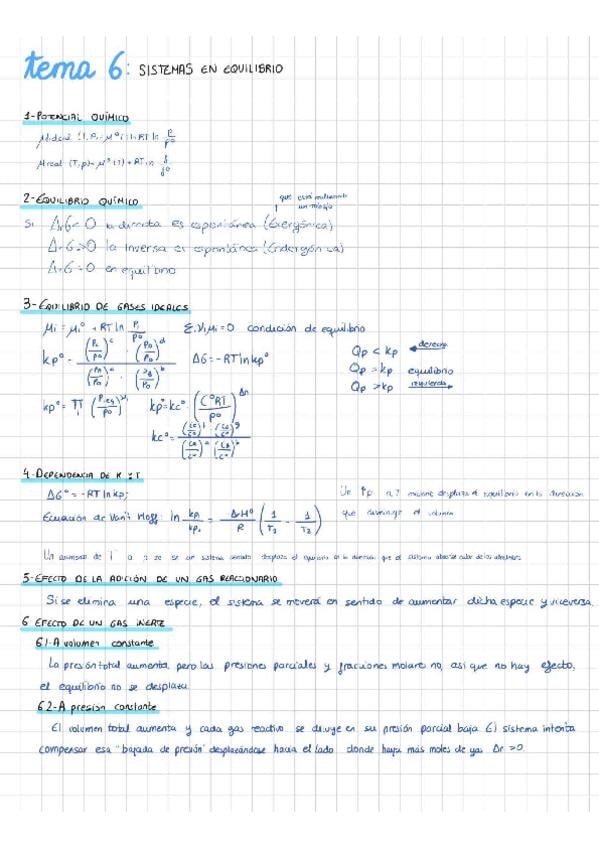 tema 6: SISTEMAS EN EQUILIBRIO
1-POTENCIAL QUÍMICO
μideal (T, P) = μ°(T) + RT ln P/P°
μreal (T, p) = μ°(T) + RT ln f/f°
2-EQUILIBRIO QUÍMICO
que está
un mojo
Si ΔrG < 0 la directa es espontánea (Exergónica)
ΔrG > 0 la inversa es espontánea (Endergónica)
ΔrG = 0 en equilibrio
3-EQUILIBRIO DE GASES IDEALES
μi = μi° + RT ln Pi/P° Σi νi μi = 0 condición de equilibrio
kp° = (Pc/P°)^c · (PD/P°)^d / (PA/P°)^a · (PB/P°)^b ΔG = -RT ln kp°
Qp < kp derecha
Qp = kp equilibrio
Qp > kp izquierda
kp° = Πi (Pi,eq/P°)^νi kp° = kc° · (C°RT/P°)^Δn
kc° =
4-DEPENDENCIA DE K Y T
ΔG° = -RT ln kp;
Ecuación de Van't Hoff: ln kp₁/kp₂ = -ΔrH°/R (1/T₁ - 1/T₂)
Un ↑p a T mantiene desplaza el equilibrio en la dirección
que disminuye el volumen
Un aumento de T a sistema cerrado desplaza el equilibrio en la dirección que el sistema absorbe calor de los alrededores
5-EFECTO DE LA ADICIÓN DE UN GAS REACCIONARIO
Si se elimina una especie, el sistema se moverá en sentido de aumentar dicha especie y viceversa.
6 EFECTO DE UN GAS INERTE
6.1-A volumen constante
La presión total aumenta, pero las presiones parciales y fracciones molares no, así que no hay efecto,
el equilibrio no se desplaza
6.2-A presión constante
El volumen total aumenta y cada gas reactivo se diluye en su presión parcial baja El sistema intenta
compensar esa "bajada de presión" desplazándose hacia el lado donde haya más moles de gas Δn > 0.